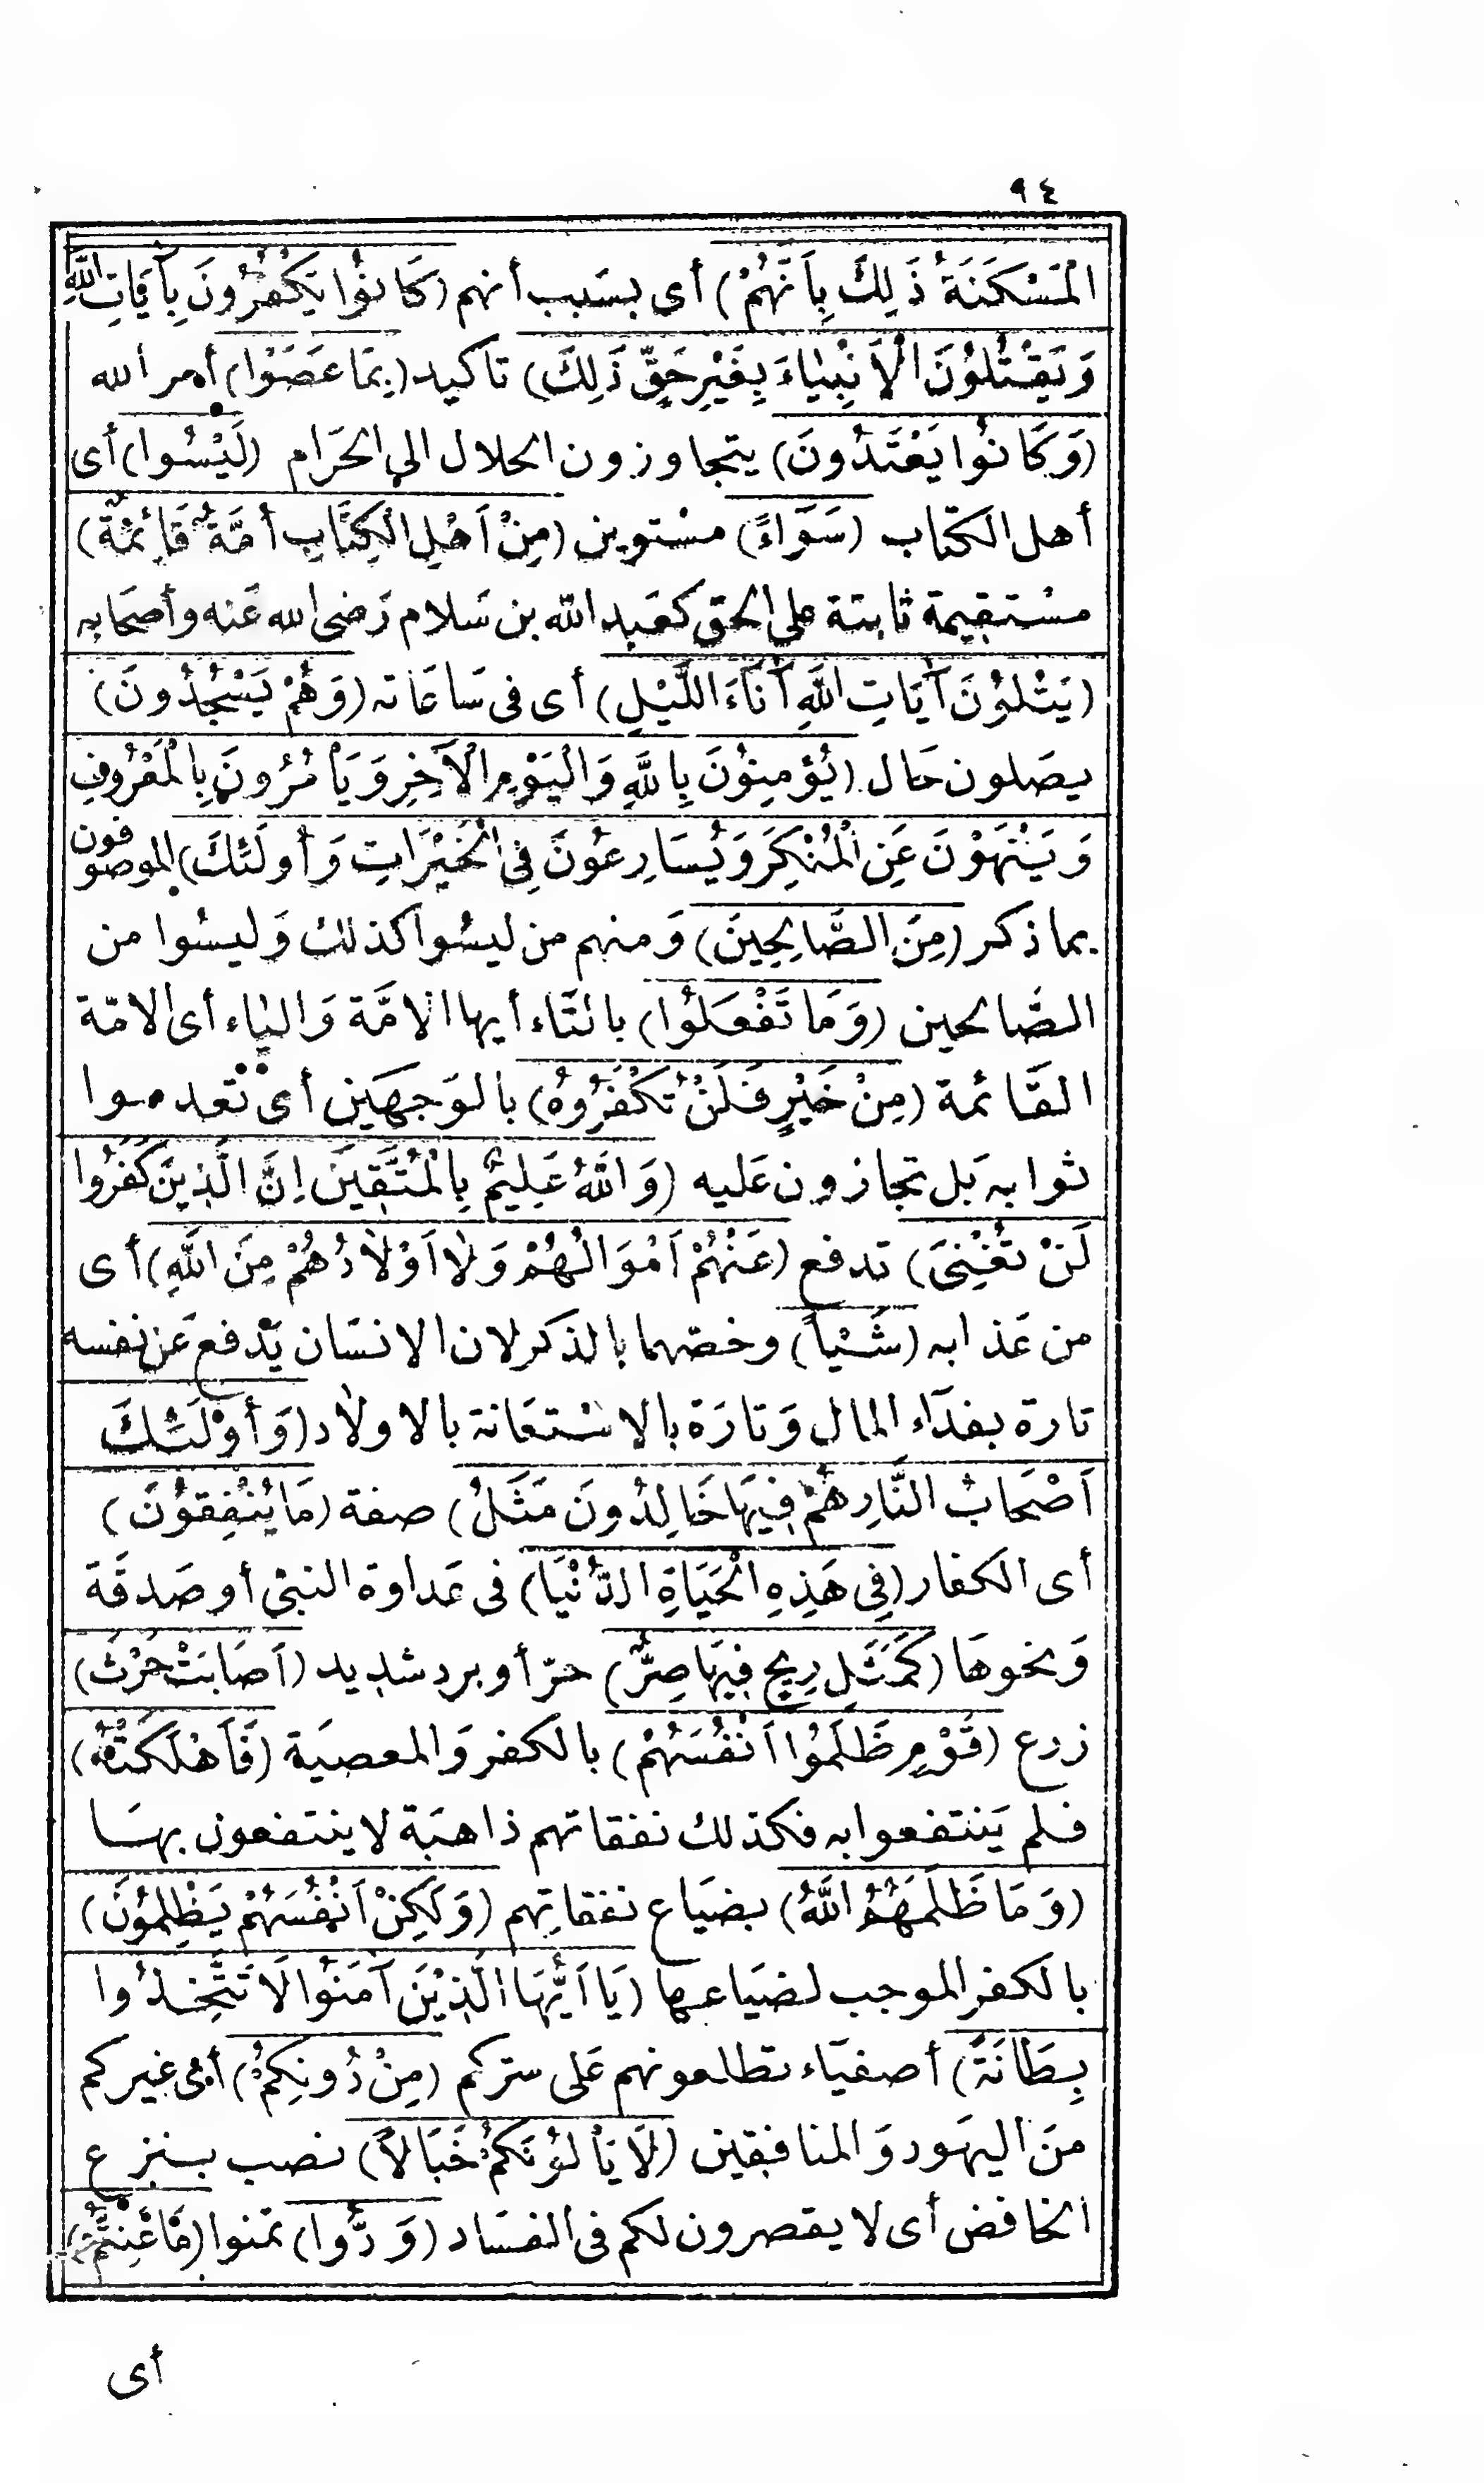 ٩٤
الْمَسْكَنَةُ ذَلِكَ بِاَنَّهُمْ) أى بسَبب أنهم (كَانُوا يَكْفُرُونَ بِآيَاتِ اللَّهِ
وَيَقْتُلُونَ الْاَنْبِيَاءَ بِغَيْرِ حَقٍّ ذَلِكَ) تاكيد (بِمَا عَصَوْا) أمر الله
(وَكَانُوا يَعْتَدُونَ) يتجاوزون الحلال الى الحَرام (لَيْسُوا) أى
أهل الكتاب (سَوَآءً) مسْتوين (مِنْ اَهْلِ الْكِتَابِ أُمَّةٌ قَائِمَةٌ)
مسْتقيمة ثابتة على الحق كعَبد الله بن سَلام رَضى الله عَنه وأصحَابه
(يَتْلُونَ آيَاتِ اللَّهِ آنَآءَ اللَّيْلِ) أى فى سَاعَاته (وَهُمْ يَسْجُدُونَ)
يصَلون حَال (يُؤْمِنُونَ بِاللَّهِ وَالْيَوْمِ الْآخِرِ وَيَأْمُرُونَ بِالْمَعْرُوفِ
وَيَنْهَوْنَ عَنِ الْمُنْكَرِ وَيُسَارِعُونَ فِى الْخَيْرَاتِ وَأُولَئِكَ) الموصوفون
بما ذكر (مِنَ الصَّالِحِينَ) وَمنهم من ليسُوا كذلك وَليسُوا من
الصَّالحين (وَمَا تَفْعَلُوا) بالتَّاء أيها الامَّة وَالياء أى الامّة
القَائمة (مِنْ خَيْرٍ فَلَنْ تُكْفَرُوهُ) بالوَجهَين أى تعدموا
ثوابه بَل تجازون عَليه (وَاللَّهُ عَلِيمٌ بِالْمُتَّقِينَ اِنَّ الَّذِينَ كَفَرُوا
لَنْ تُغْنِىَ) تدفع (عَنْهُمْ اَمْوَالُهُمْ وَلَا اَوْلَادُهُمْ مِنَ اللَّهِ) أى
من عَذابه (شَيْئاً) وخصّهما بالذكر لان الانسَان يَدفع عَن نفسه
تارة بفدَآء المال وَتارَة بالاسْتعَانة بالاولَاد (وَأُولَئِكَ
اَصْحَابُ النَّارِ هُمْ فِيهَا خَالِدُونَ مَثَلُ) صفة (مَا يُنْفِقُونَ)
أى الكفار (فِى هَذِهِ الْحَيَاةِ الدُّنْيَا) فى عَداوة النبىّ أو صَدقَة
وَنحوهَا (كَمَثَلِ رِيحٍ فِيهَا صِرٌّ) حرّ أو برد شديد (اَصَابَتْ حَرْثَ)
زرع (قَوْمٍ ظَلَمُوا اَنْفُسَهُمْ) بالكفر وَالمعصيَة (فَاَهْلَكَتْهُ)
فلم يَنتفعوا به فكذلك نفقاتهم ذاهبَة لا ينتفعون بهَا
(وَمَا ظَلَمَهُمُ اللَّهُ) بضيَاع نفقاتِهم (وَلَكِنْ اَنْفُسَهُمْ يَظْلِمُونَ)
بالكفر الموجب لضيَاعها (يَا اَيُّهَا الَّذِيْنَ آمَنُوا لَا تَتَّخِذُوا
بِطَانَةً) أصفيَاء تطلعونهم عَلى سرّكم (مِنْ دُونِكُمْ) أى غيركم
منَ اليهَود وَالمنافقين (لَا يَأْلُونَكُمْ خَبَالاً) نصب بنزع
الخافض أى لا يقصرون لكم فى الفسَاد (وَدُّوا) تمنوا (مَا عَنِتُّمْ)
أى